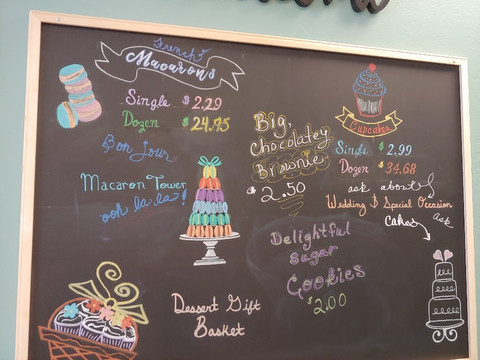 French
Macarons
Single $2.29
Dozen $24.75
Bon jour
Macaron Tower
ooh la la!
Big,
Chocolatey
Brownie
$2.50
Cupcakes
Single $2.99
Dozen $34.68
ask about
Wedding & Special Occasion
Cakes
ask
Delightful
Sugar
Cookies
$2.00
Dessert Gift
Basket